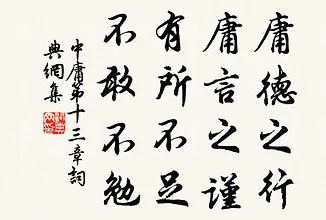 庸德之行
庸言之謹
有所不足
不敢不勉
中庸第十三章詞
典網集